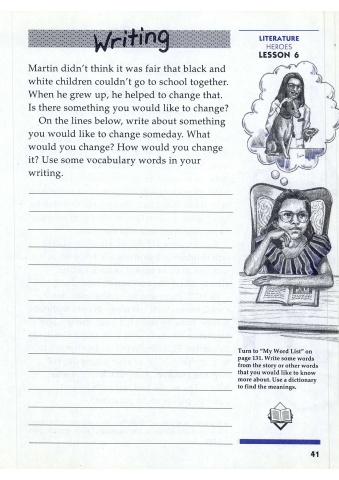 Writing
LITERATURE
HEROES
LESSON 6
Martin didn't think it was fair that black and
white children couldn't go to school together.
When he grew up, he helped to change that.
Is there something you would like to change?
On the lines below, write about something
you would like to change someday. What
would you change? How would you change
it? Use some vocabulary words in your
writing.
Turn to "My Word List" on
page 131. Write some words
from the story or other words
that you would like to know
more about. Use a dictionary
to find the meanings.
41